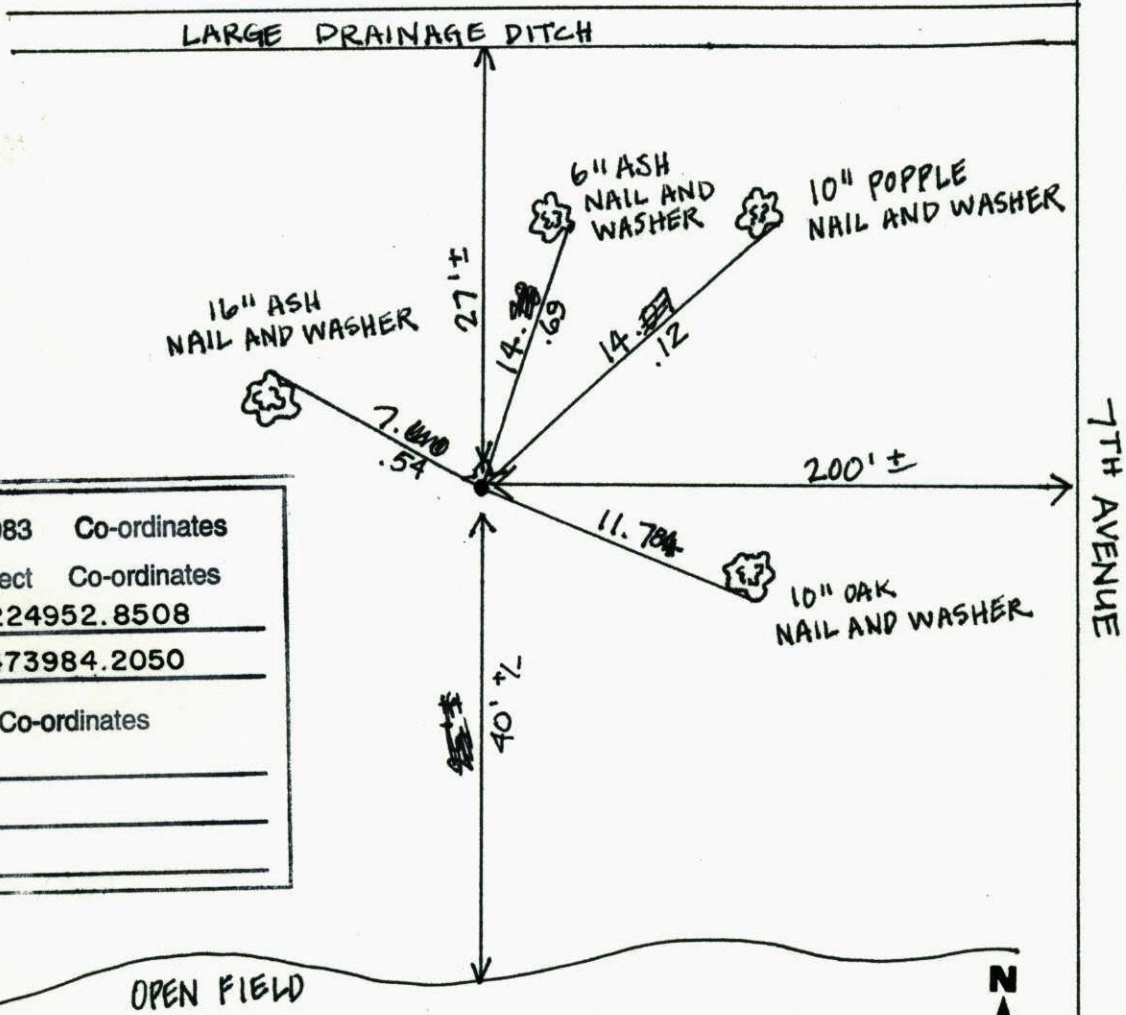 LARGE DRAINAGE DITCH
6" ASH
NAIL AND
WASHER
10" POPPLE
NAIL AND WASHER
16" ASH
NAIL AND WASHER
27'±
14.
.69
14.
.12
7.
.54
200' ±
7TH AVENUE
11.78
10" OAK
NAIL AND WASHER
983 Co-ordinates
ect Co-ordinates
224952.8508
473984.2050
Co-ordinates
40' +/-
OPEN FIELD
N